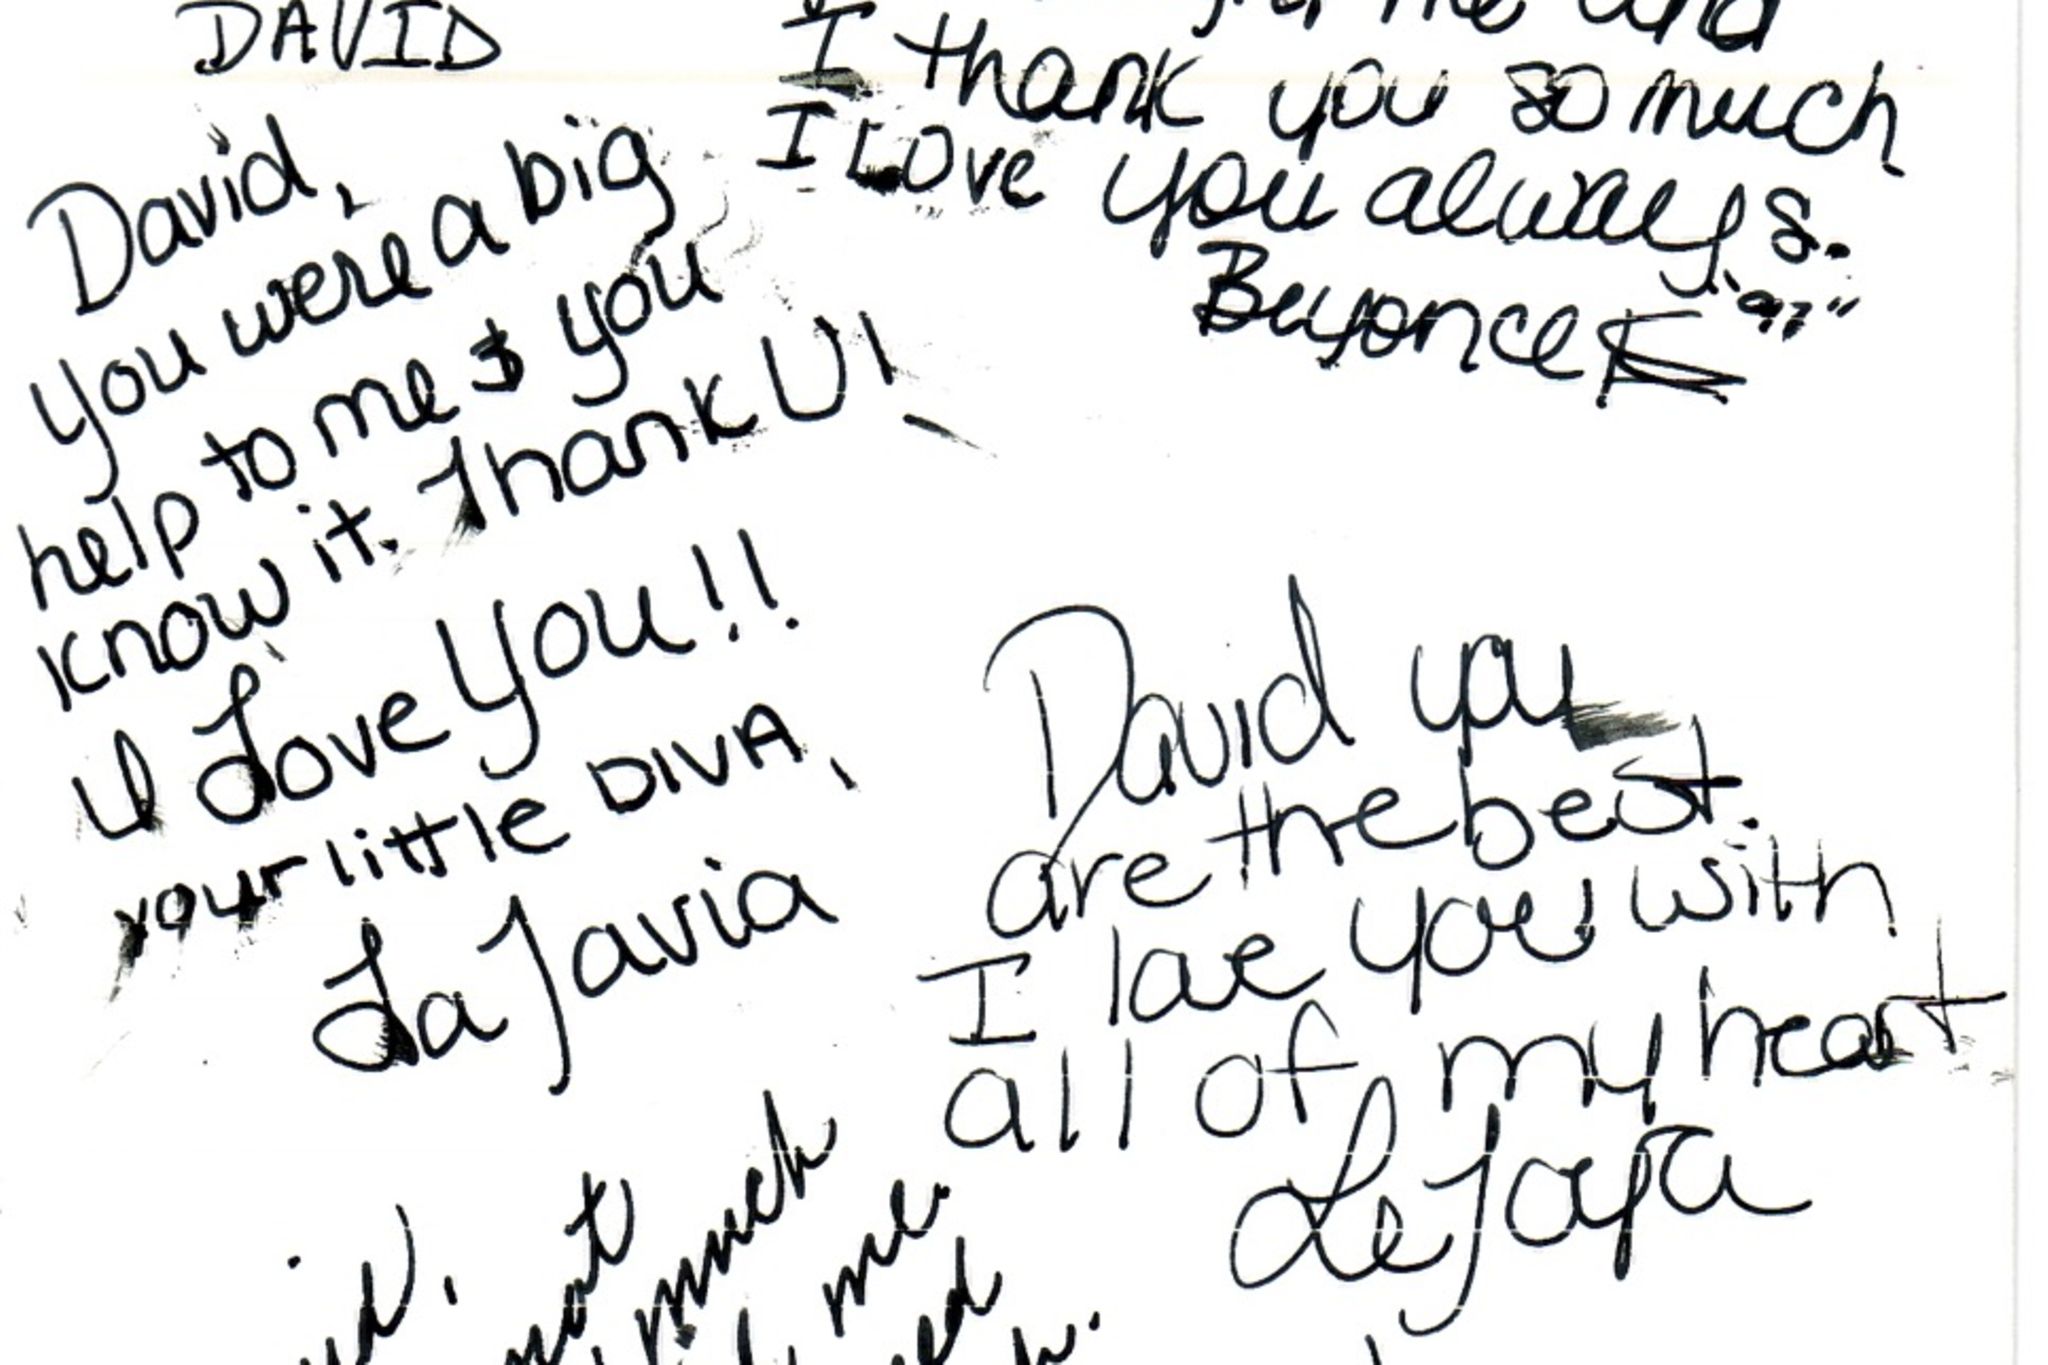 DAVID
David,
you were a big
help to me & you
know it. Thank U!
I Love You!!
your little DIVA,
LaTavia
me and
I thank you so much
I Love you always.
Beyonce K "97"
David you
are the best.
I love you with
all of my heart
LeToya
not
much
me.